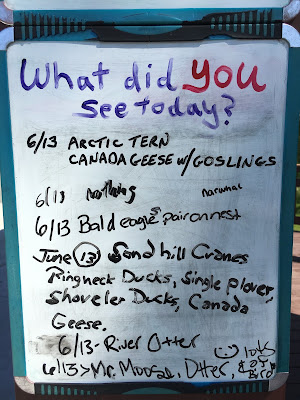 What did YOU
see today?
6/13 ARCTIC TERN
CANADA GEESE w/ GOSLINGS
6/13 nothing narwhal
6/13 Bald eagle pair on nest
June 13 Sandhill Cranes
Ringneck Ducks, Single plover,
Shoveler Ducks, Canada
Geese.
6/13 - River Otter
6/13 > Mr. Moose, Otter, lots
& of Birds